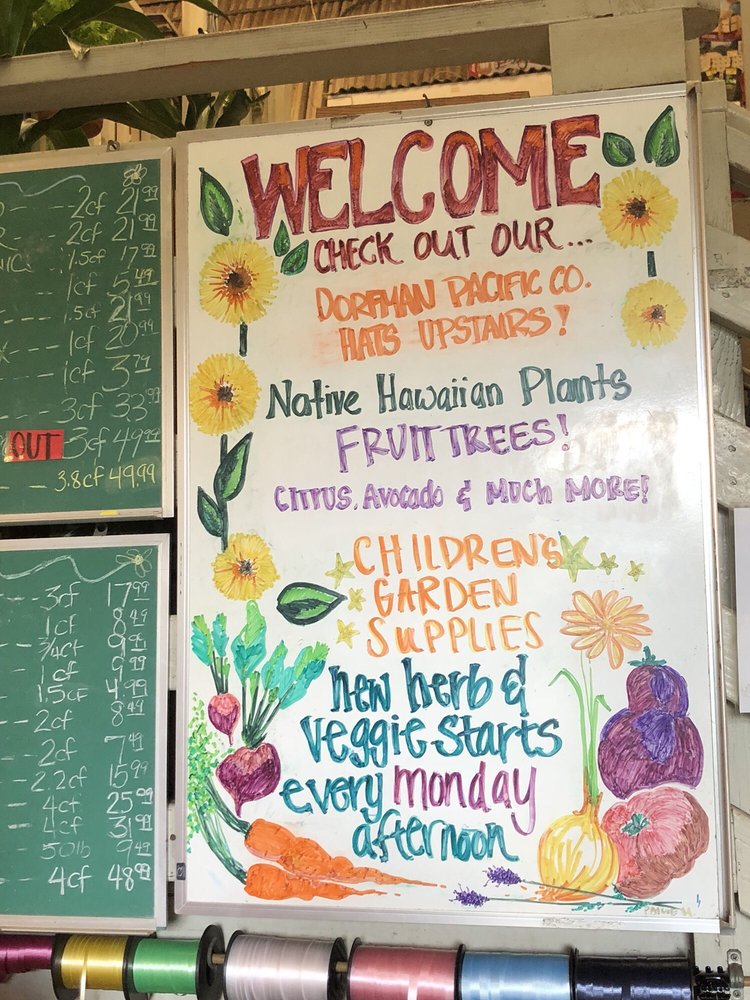 2cf 21.99
2cf 21.99
1.5cf 17.99
1cf 5.49
1.5cf 21.99
1cf 20.99
1cf 3.79
3cf 33.99
OUT 3cf 49.99
3.8cf 49.99
3cf 17.99
1cf 8.49
3/4cf 9.99
1cf 9.99
1.5cf 4.99
2cf 8.49
2cf 7.49
2.2cf 15.99
4cf 25.99
4cf 31.99
50lb 9.49
4cf 48.99
WELCOME
CHECK OUT OUR...
DORFMAN PACIFIC CO.
HATS UPSTAIRS!
Native Hawaiian Plants
FRUIT TREES!
CITRUS, Avocado & MUCH MORE!
CHILDREN'S
GARDEN
SUPPLIES
new herb &
veggie starts
every monday
afternoon